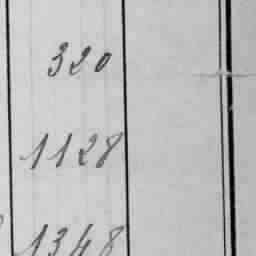 320
1128
1348